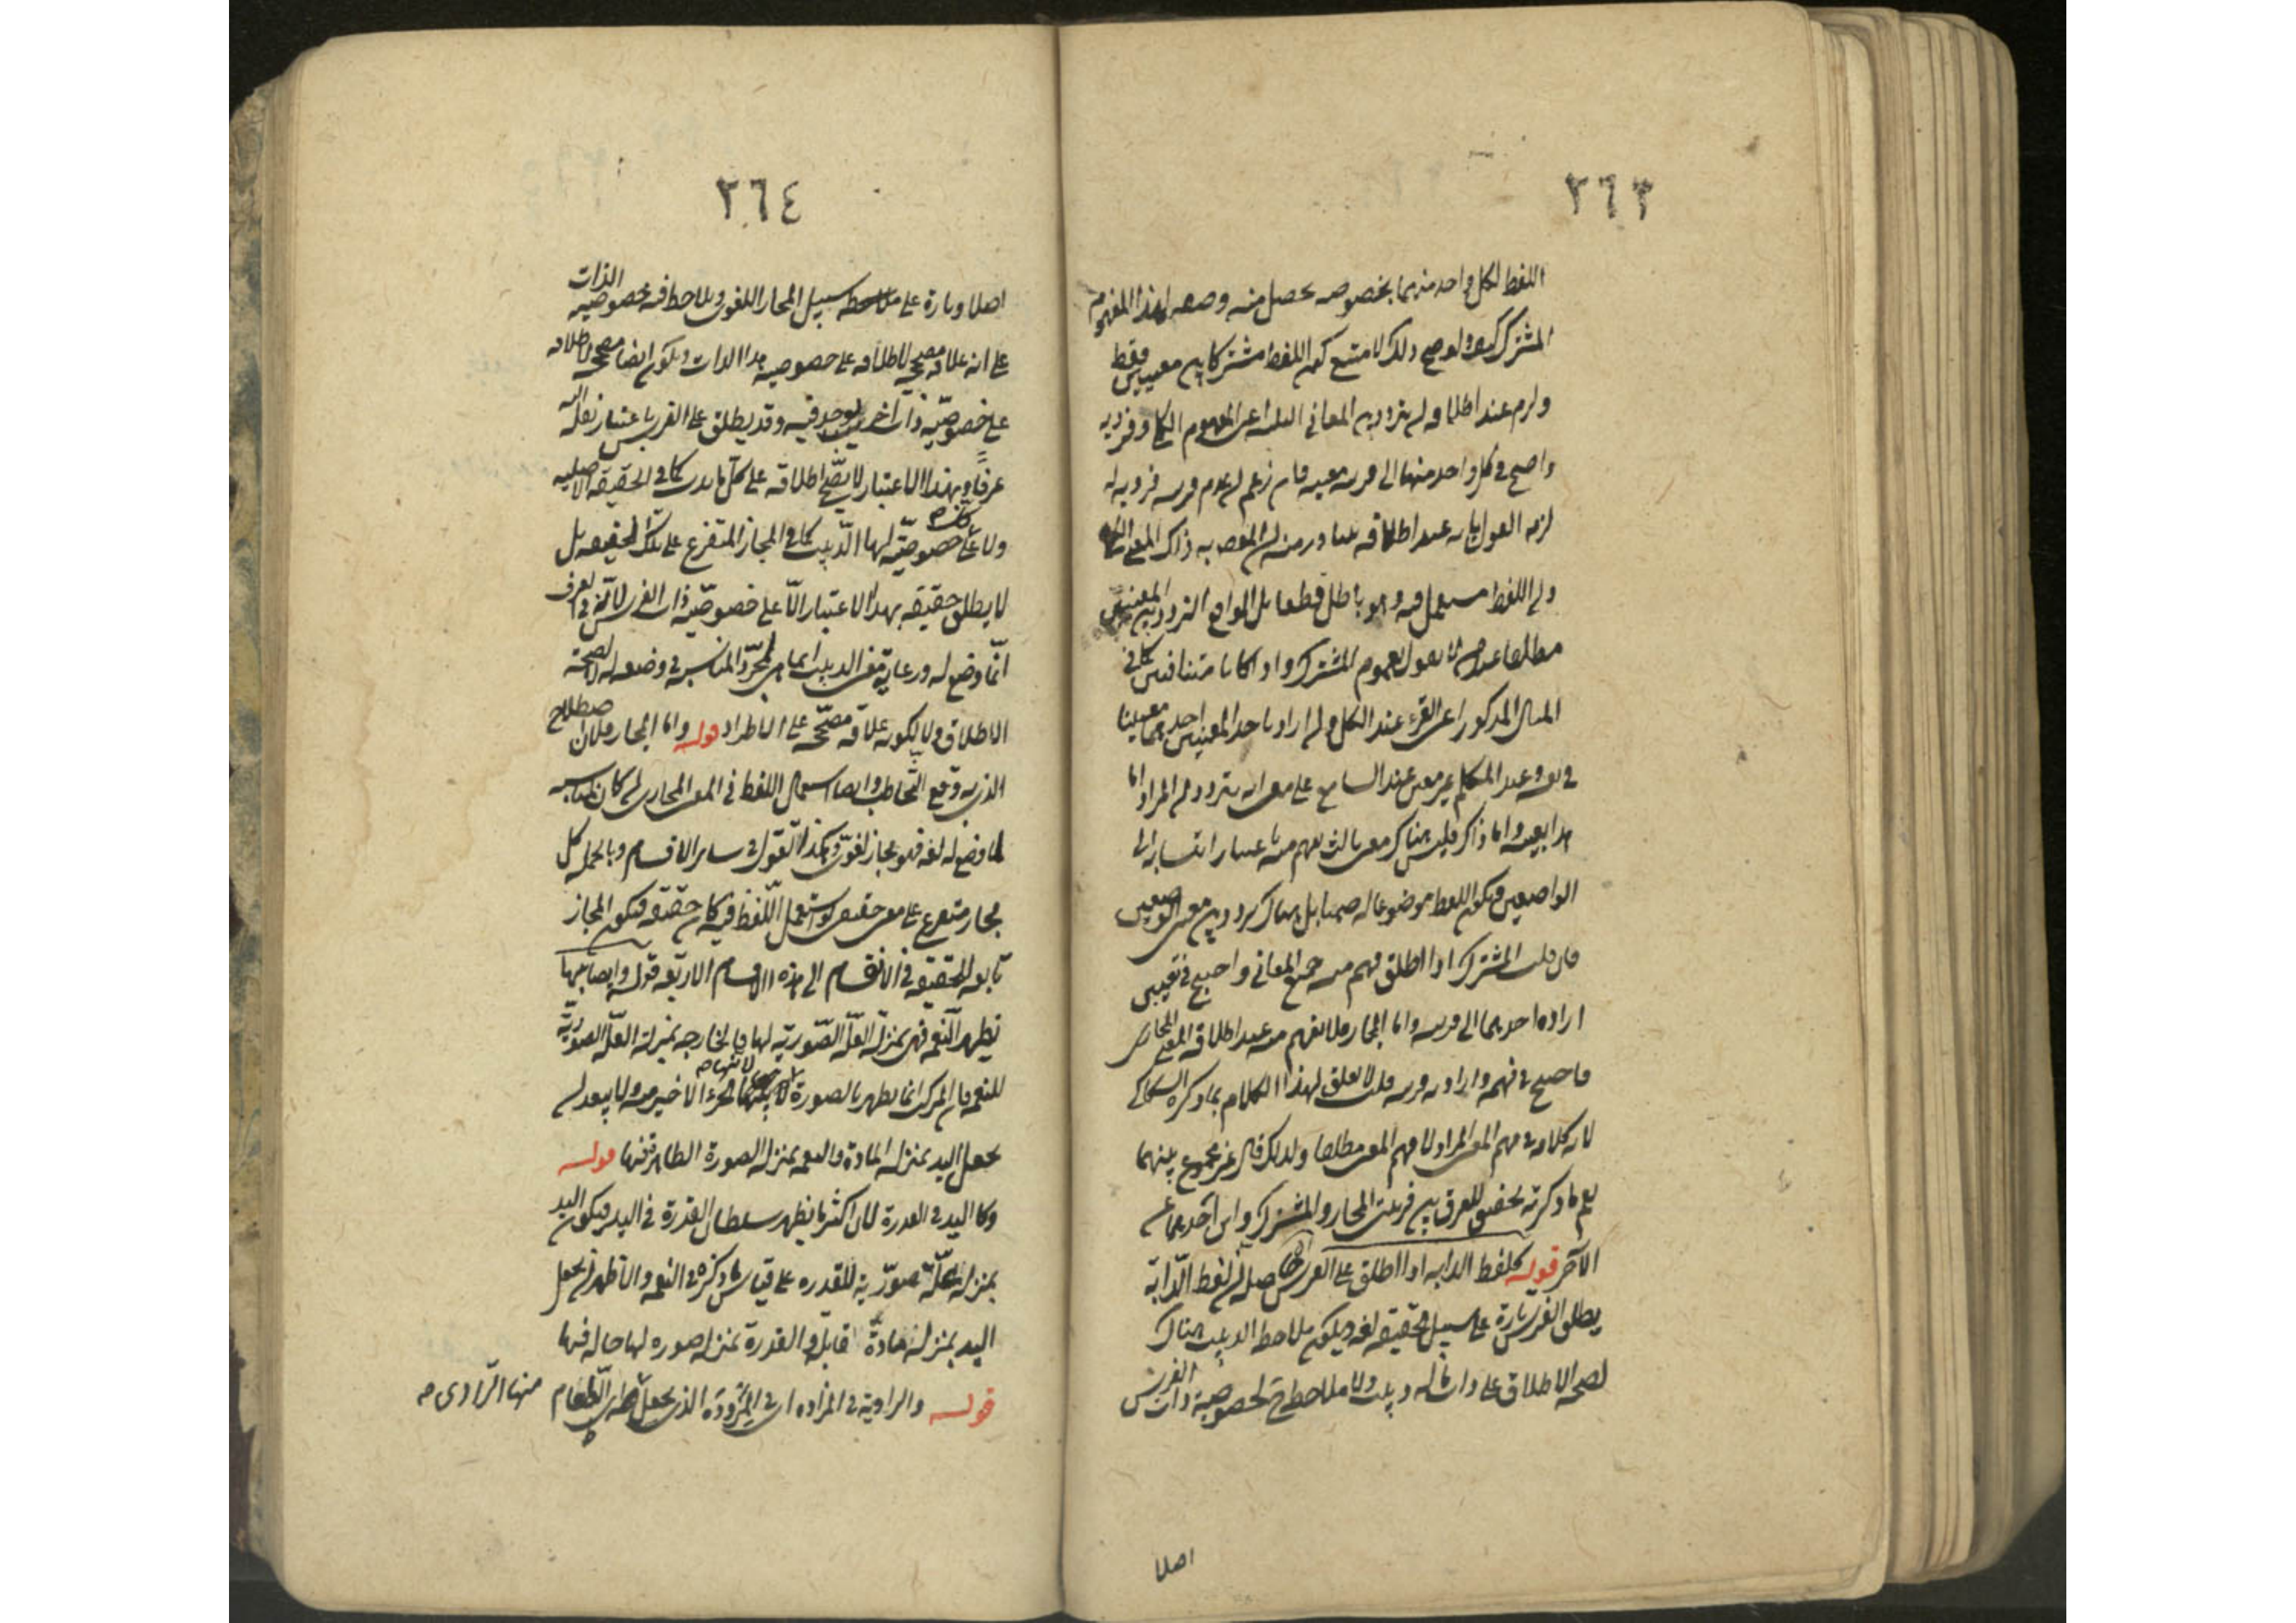 ٣٦٣
اللفظ لكل واحد منهما بخصوصه يحصل منه وضعه لهذا المفهوم
المشترك ولو صح ذلك لامتنع كون اللفظ مشتركا بين معنيين فقط
ولزم عند اطلاقه ان يتردد بين المعاني الثلثة اعني المفهوم الكلي وفرديه
واحتيج في كل واحد منها الى قرينة معينة فان زعم ان عدم قرينة فرديه
لزمه القول بانه عند اطلاقه يتبادر منه ان المقصود به ذاك المعنى الكلي
وان اللفظ مستعمل فيه وهو باطل قطعا بل الواقع التردد بين المعنيين
مطلقا عند من لا يقول بعموم المشترك واذا كانا متنافيين كما في
المثال المذكور اعني القرء عند الكل وان اراد باحد المعنيين احدهما معينا
في نفسه وعند المتكلم غير معين عند السامع على معنى انه يتردد ان المراد اما
هذا بعينه واما ذاك فليس هناك معنى ثالث يفهم منه باعتبار انتسابه الى
الواضعين فيكون اللفظ موضوعا له ضمنا بل هناك تردد بين معنى الوضعين
فان قلت المشترك اذا اطلق فهم منه جميع المعاني واحتيج في تعيين
ارادة احدهما الى قرينة واما المجاز فلا يفهم منه عند اطلاقه المعنى المجازي
فاحتيج في فهمه وارادته قرينة قلت لا تعلق لهذا الكلام بما ذكره السكاكي
لان كلامه في فهم المعنى المراد لا فهم المعنى مطلقا ولذلك قال غير مجموع بينهما
نعم ما ذكرته تحقيق للفرق بين قرينتي المجاز والمشترك واين احدهما عن
الآخر قوله كلفظ الدابة اذا اطلق على الفرس الحاصل ان لفظ الدابة
يطلق الفرس تارة على سبيل الحقيقة لغة ويكون ملاحظ الدبيب هناك
لصحة الاطلاق على ذات ما له دبيب ولا ملاحظة لخصوصية ذات الفرس
اصلا
٣٦٤
اصلا وتارة على سبيل المجاز اللغوي ويلاحظ فيه خصوصية الذات
على انه علاقة مصححة لاطلاقه على خصوصية هذا الذات ويكون ايضا مصححا لاطلاقه
على خصوصية ذات اخرى يوجد فيه وقد يطلق على الفرس باعتبار نقله اليه
عرفا وبهذا الاعتبار لا يصح اطلاقه على كل ما يدب كما في الحقيقة الاصلية
ولا على خصوصية لها الدبيب كما في المجاز المتفرع على تلك الحقيقة بل
لا يطلق حقيقة بهذا الاعتبار الا على خصوصية ذات الفرس لانه في العرف
انما وضع له ورعاية معنى الدبيب انما هي لمجرد المناسبة في وضعه له لا لصحة
الاطلاق ولا لكونه علاقة مصححة على الاطراد قوله واما المجاز فلان اصطلاح
الذي به وقع التخاطب وايضا استعمال اللفظ في المعنى المجازي ان كان لمناسبة
لما وضع له لغة فهو مجاز لغوي وهكذا القول في سائر الاقسام وبالجملة كل
مجاز متفرع على معنى حقيقي لو استعمل اللفظ فيه كان حقيقة فيكون المجاز
تابعه للحقيقة في الانقسام الى هذه الاقسام الاربعة قوله وايضا بها
تظهر النعم فهي بمنزلة العلة الصورية لها فالخارجة بمنزلة العلة الصورية
للنعم فان المركب انما يظهر بالصورة لانها الجزء الاخير منه ولا يبعد ان
يجعل اليد بمنزلة المادة والنعمة بمنزلة الصورة الظاهرة فيها قوله
وكاليد في القدرة لان اكثر ما يظهر سلطان القدرة في اليد فيكون اليد
بمنزلة علة صورية للقدرة على قياس ما ذكره في النعم والاظهر ان يجعل
اليد بمنزلة مادة قابلة والقدرة بمنزلة صورة لها حالة فيها
قوله والراوية في المزادة اي في المزودة الذي يجعل فيها الطعام
منها الزاد ى